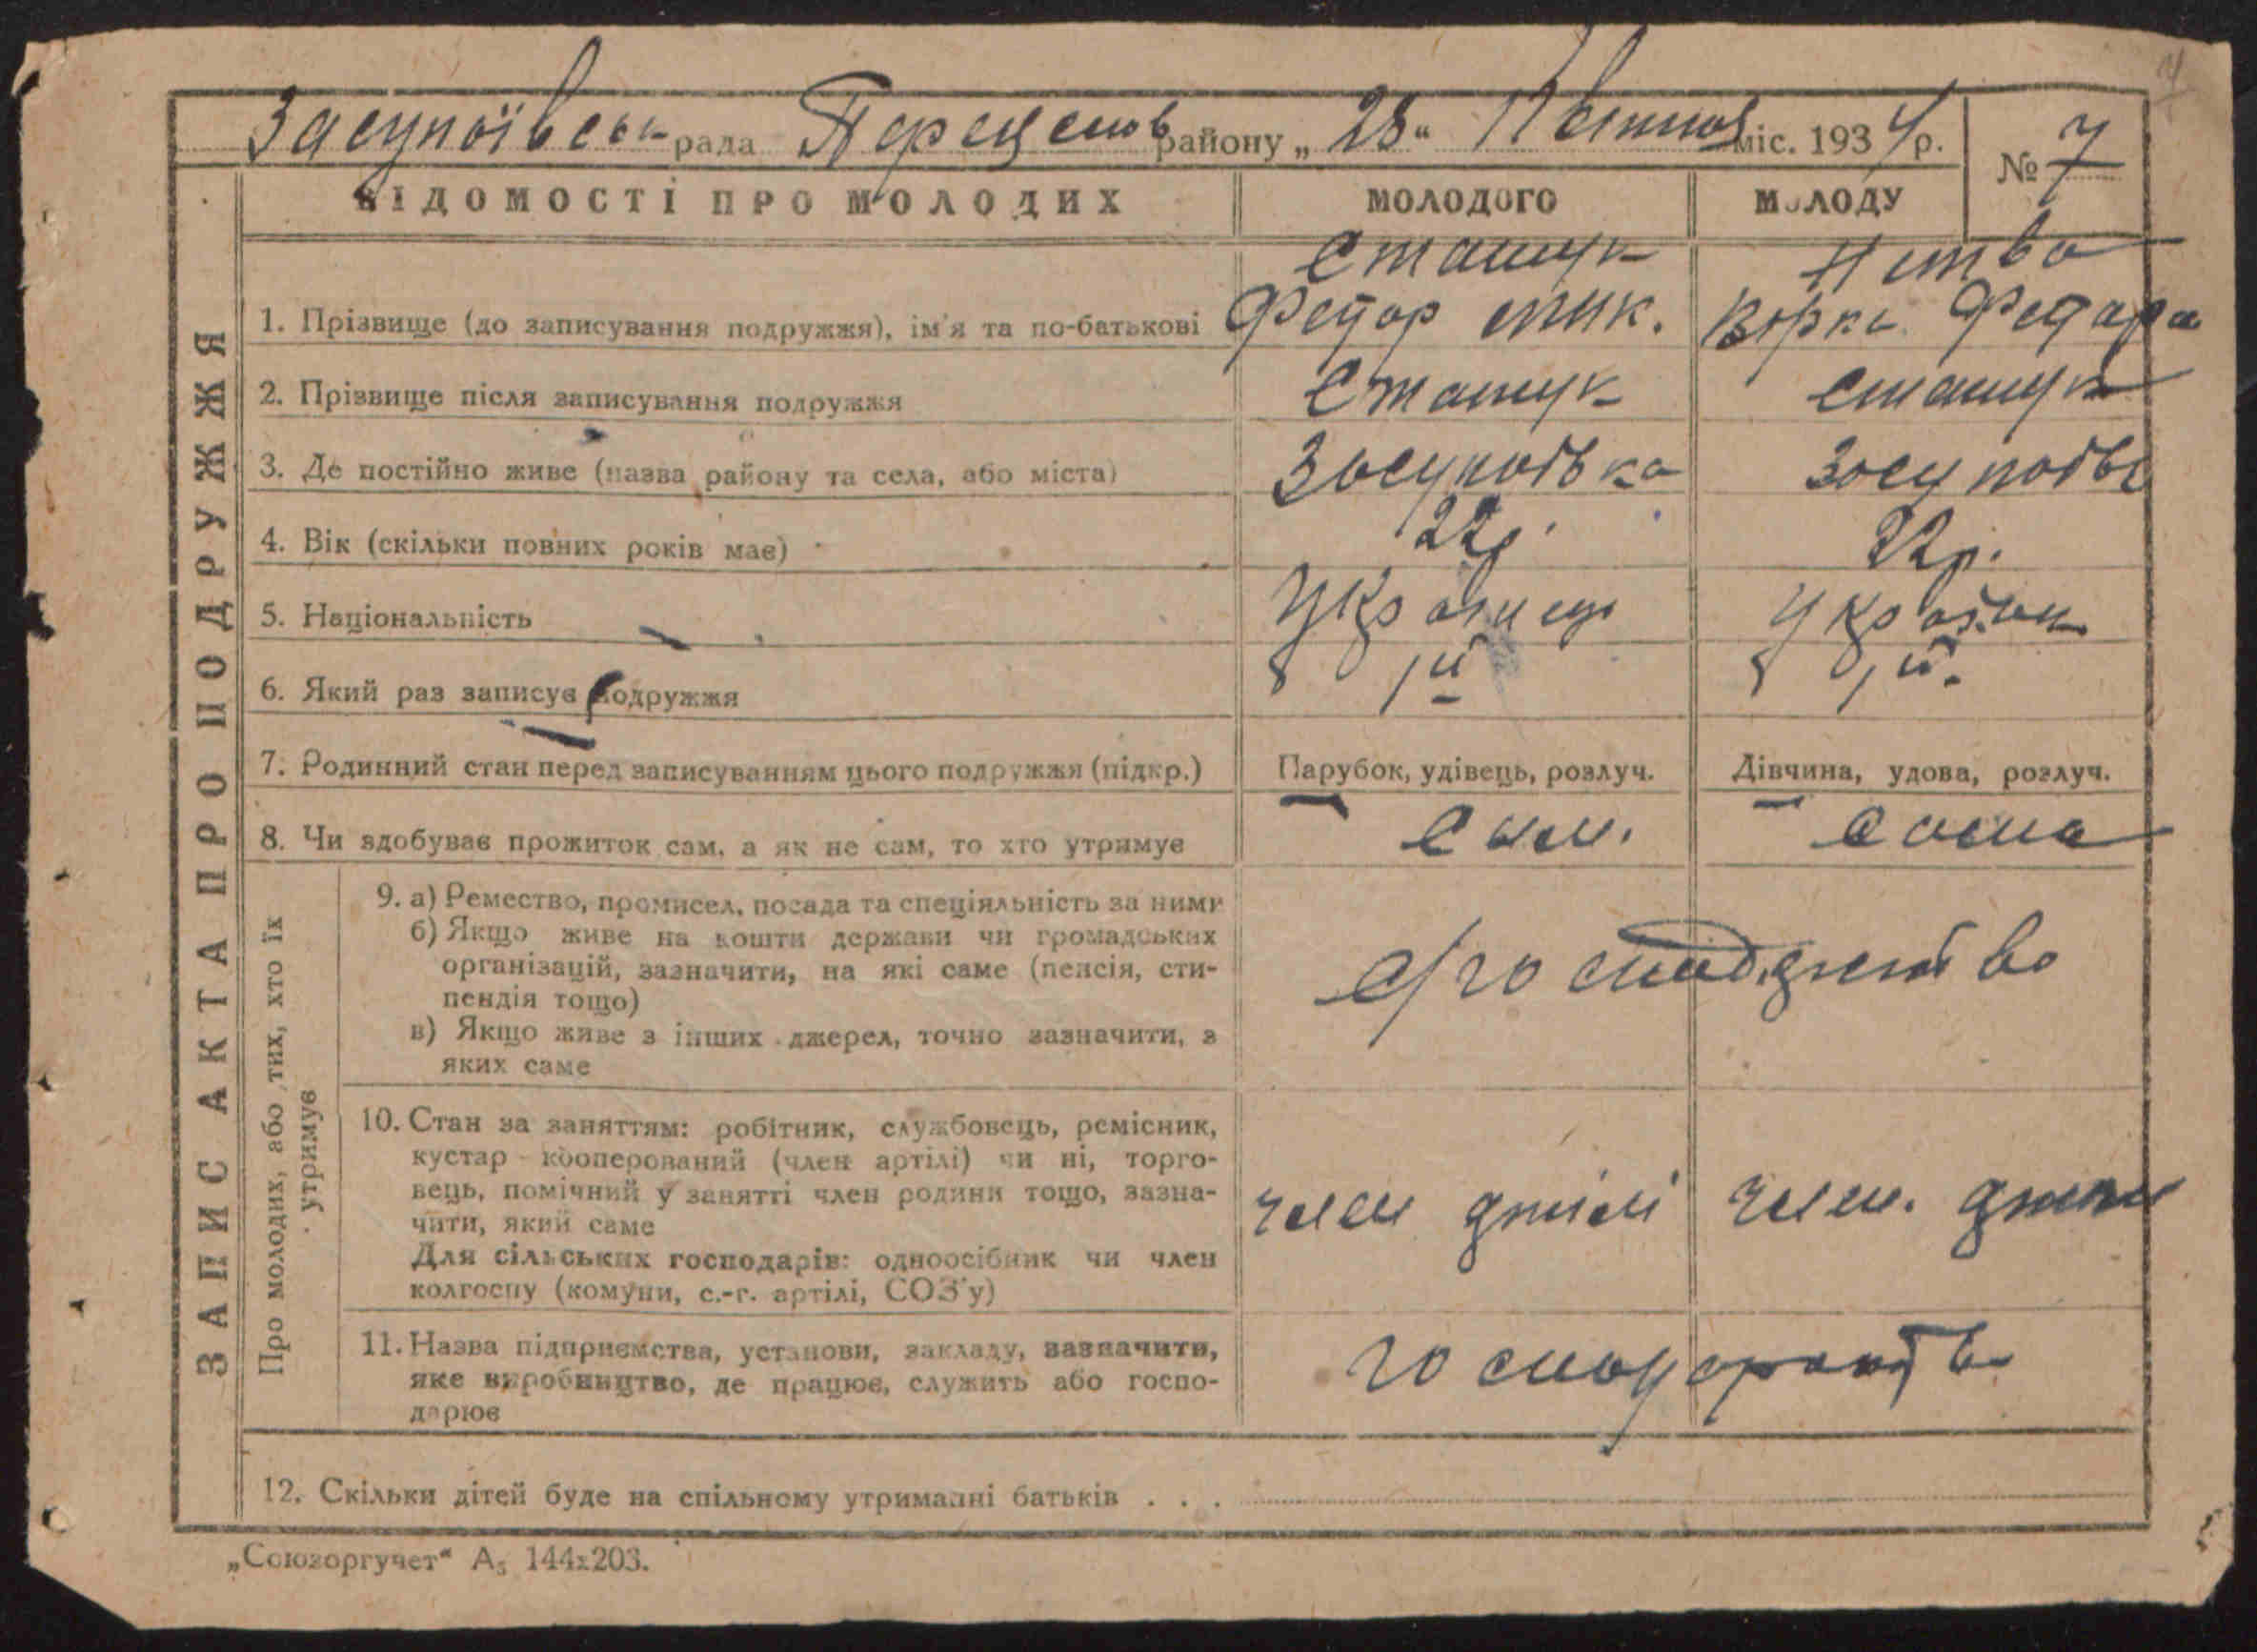 Засупоївськ рада районy „28“ міс. 1934 р.
№ 7
ВІДОМОСТІ ПРО МОЛОДИХ
МОЛОДОГО
МОЛОДУ
ЗАПИС АКТА ПРО ПОДРУЖЖЯ
1. Прізвище (до записування подружжя), ім'я та по-батькові
Сташук
Федор Мик.
Федора
2. Прізвище після записування подружжя
Сташук
Сташук
3. Де постійно живе (назва району та села, або міста)
Засупоївка
4. Вік (скільки повних років має)
22 р.
22 р.
5. Національність
6. Який раз записує подружжя
1й
1й.
7. Родинний стан перед записуванням цього подружжя (підкр.)
Парубок, удівець, розлуч.
Дівчина, удова, розлуч.
8. Чи здобуває прожиток сам, а як не сам, то хто утримує
сама
Про молодих, або тих, хто їх
утримує
9. а) Ремество, промисел, посада та спеціяльність за ними
б) Якщо живе на кошти держави чи громадських
організацій, зазначити, на які саме (пенсія, сти-
пендія тощо)
в) Якщо живе з інших джерел, точно зазначити, з
яких саме
10. Стан за заняттям: робітник, службовець, ремісник,
кустар кооперований (член артілі) чи ні, торго-
вець, помічний у занятті член родини тощо, зазна-
чити, який саме
Для сільських господарів: одноосібник чи член
колгоспу (комуни, с.-г. артілі, СОЗ'у)
член артілі
член.
11. Назва підприємства, установи, закладу, зазначити,
яке виробництво, де працює, служить або госпо-
дарює
12. Скільки дітей буде на спільному утриманні батьків . . .
„Союзоргучет“ А₅ 144х203.